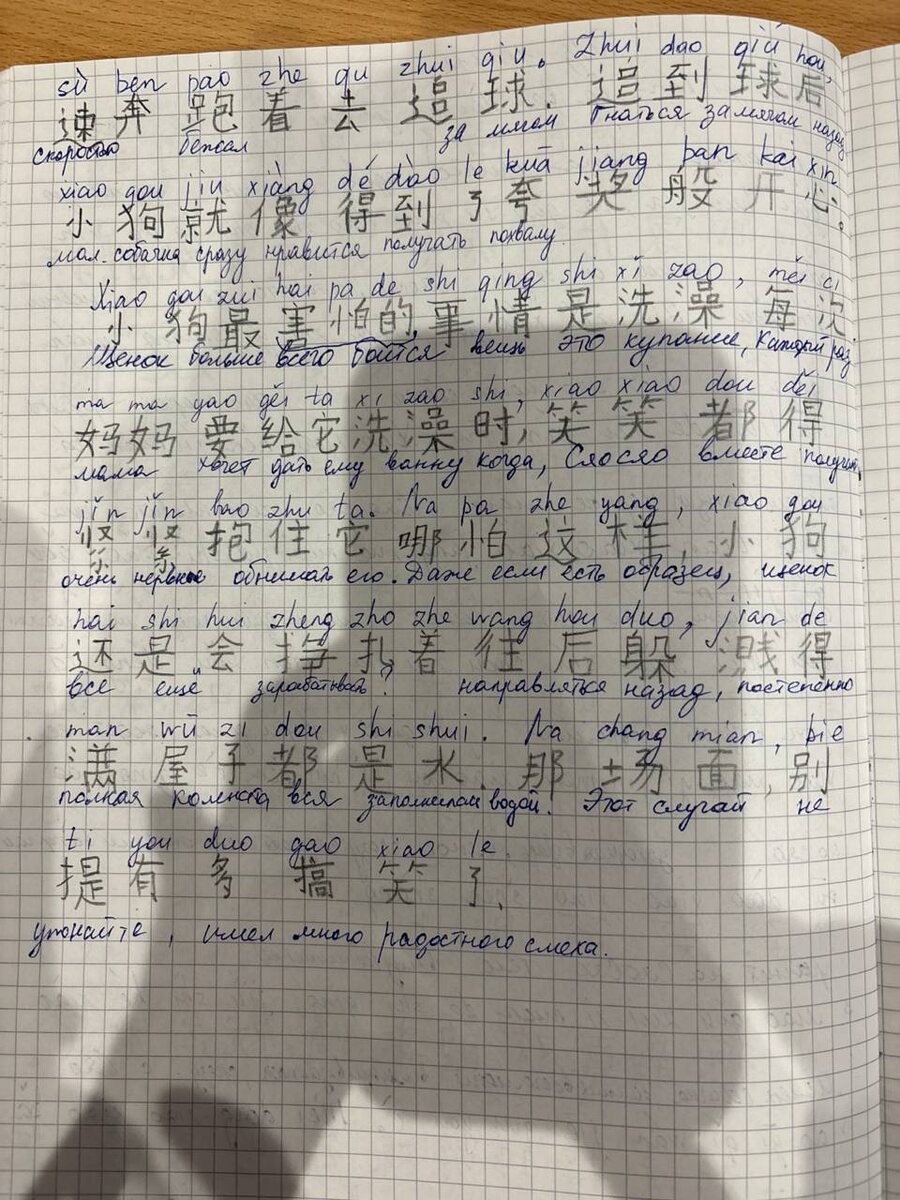 sù ben pǎo zhe qu zhui qiu. Zhui dao qiú hou,
速奔跑着去追球. 追到球后
скоростью бежал за мячом Гнаться за мячом назад
xiao gou jiu xiàng dé dào le kuā jiang ban kai xin.
小狗就像得到了夸奖般开心。
мал. собачка сразу нравится получать похвалу
Xiao gou zui hai pa de shi qing shi xǐ zao, měi ci
小狗最害怕的事情是洗澡 每次
Щенок больше всего боится вещь это купание, каждый раз
ma ma yao gěi ta xi zao shi, xiao xiao dou děi
妈妈要给它洗澡时, 笑笑都得
мама хочет дать ему ванну когда, Сяосяо вместе получит
jǐn jǐn bao zhu ta. Na pa zhe yang, xiao gou
紧紧抱住它 哪怕这样, 小狗
очень нервные обнимать его. Даже если есть образец, щенок
hai shi hui zheng zho zhe wang hou duo, jian de
还是会挣扎着往后躲, 溅得
все ещё зарабатывать? направляться назад, постепенно
man wū zi dou shi shui. Na chang mian, bie
满屋子都是水. 那场面, 别
полная комната вся заполнилась водой. Этот случай не
ti you duo gao xiao le.
提有多搞笑了.
упонайте, имел много радостного смеха.